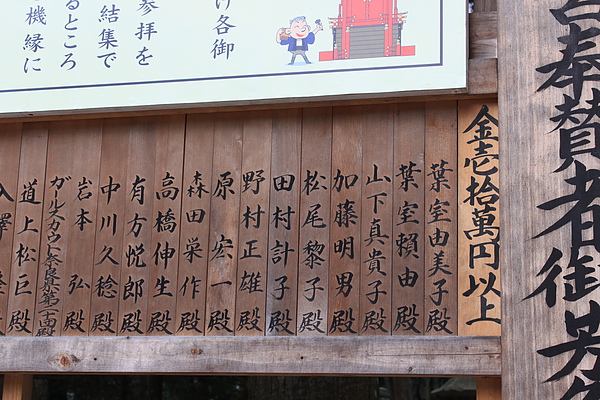 け各御
参拝を
結集で
るところ
機縁に
奉賛者御芳
金壱拾萬円以上
葉室由美子殿
葉室頼由殿
山下真貴子殿
加藤明男殿
松尾黎子殿
田村計子殿
野村正雄殿
原宏一殿
森田栄作殿
高橋伸生殿
有方悦郎殿
中川久稔殿
岩本弘殿
ガールスカウト奈良県第二十四殿
道上松巨殿
殿